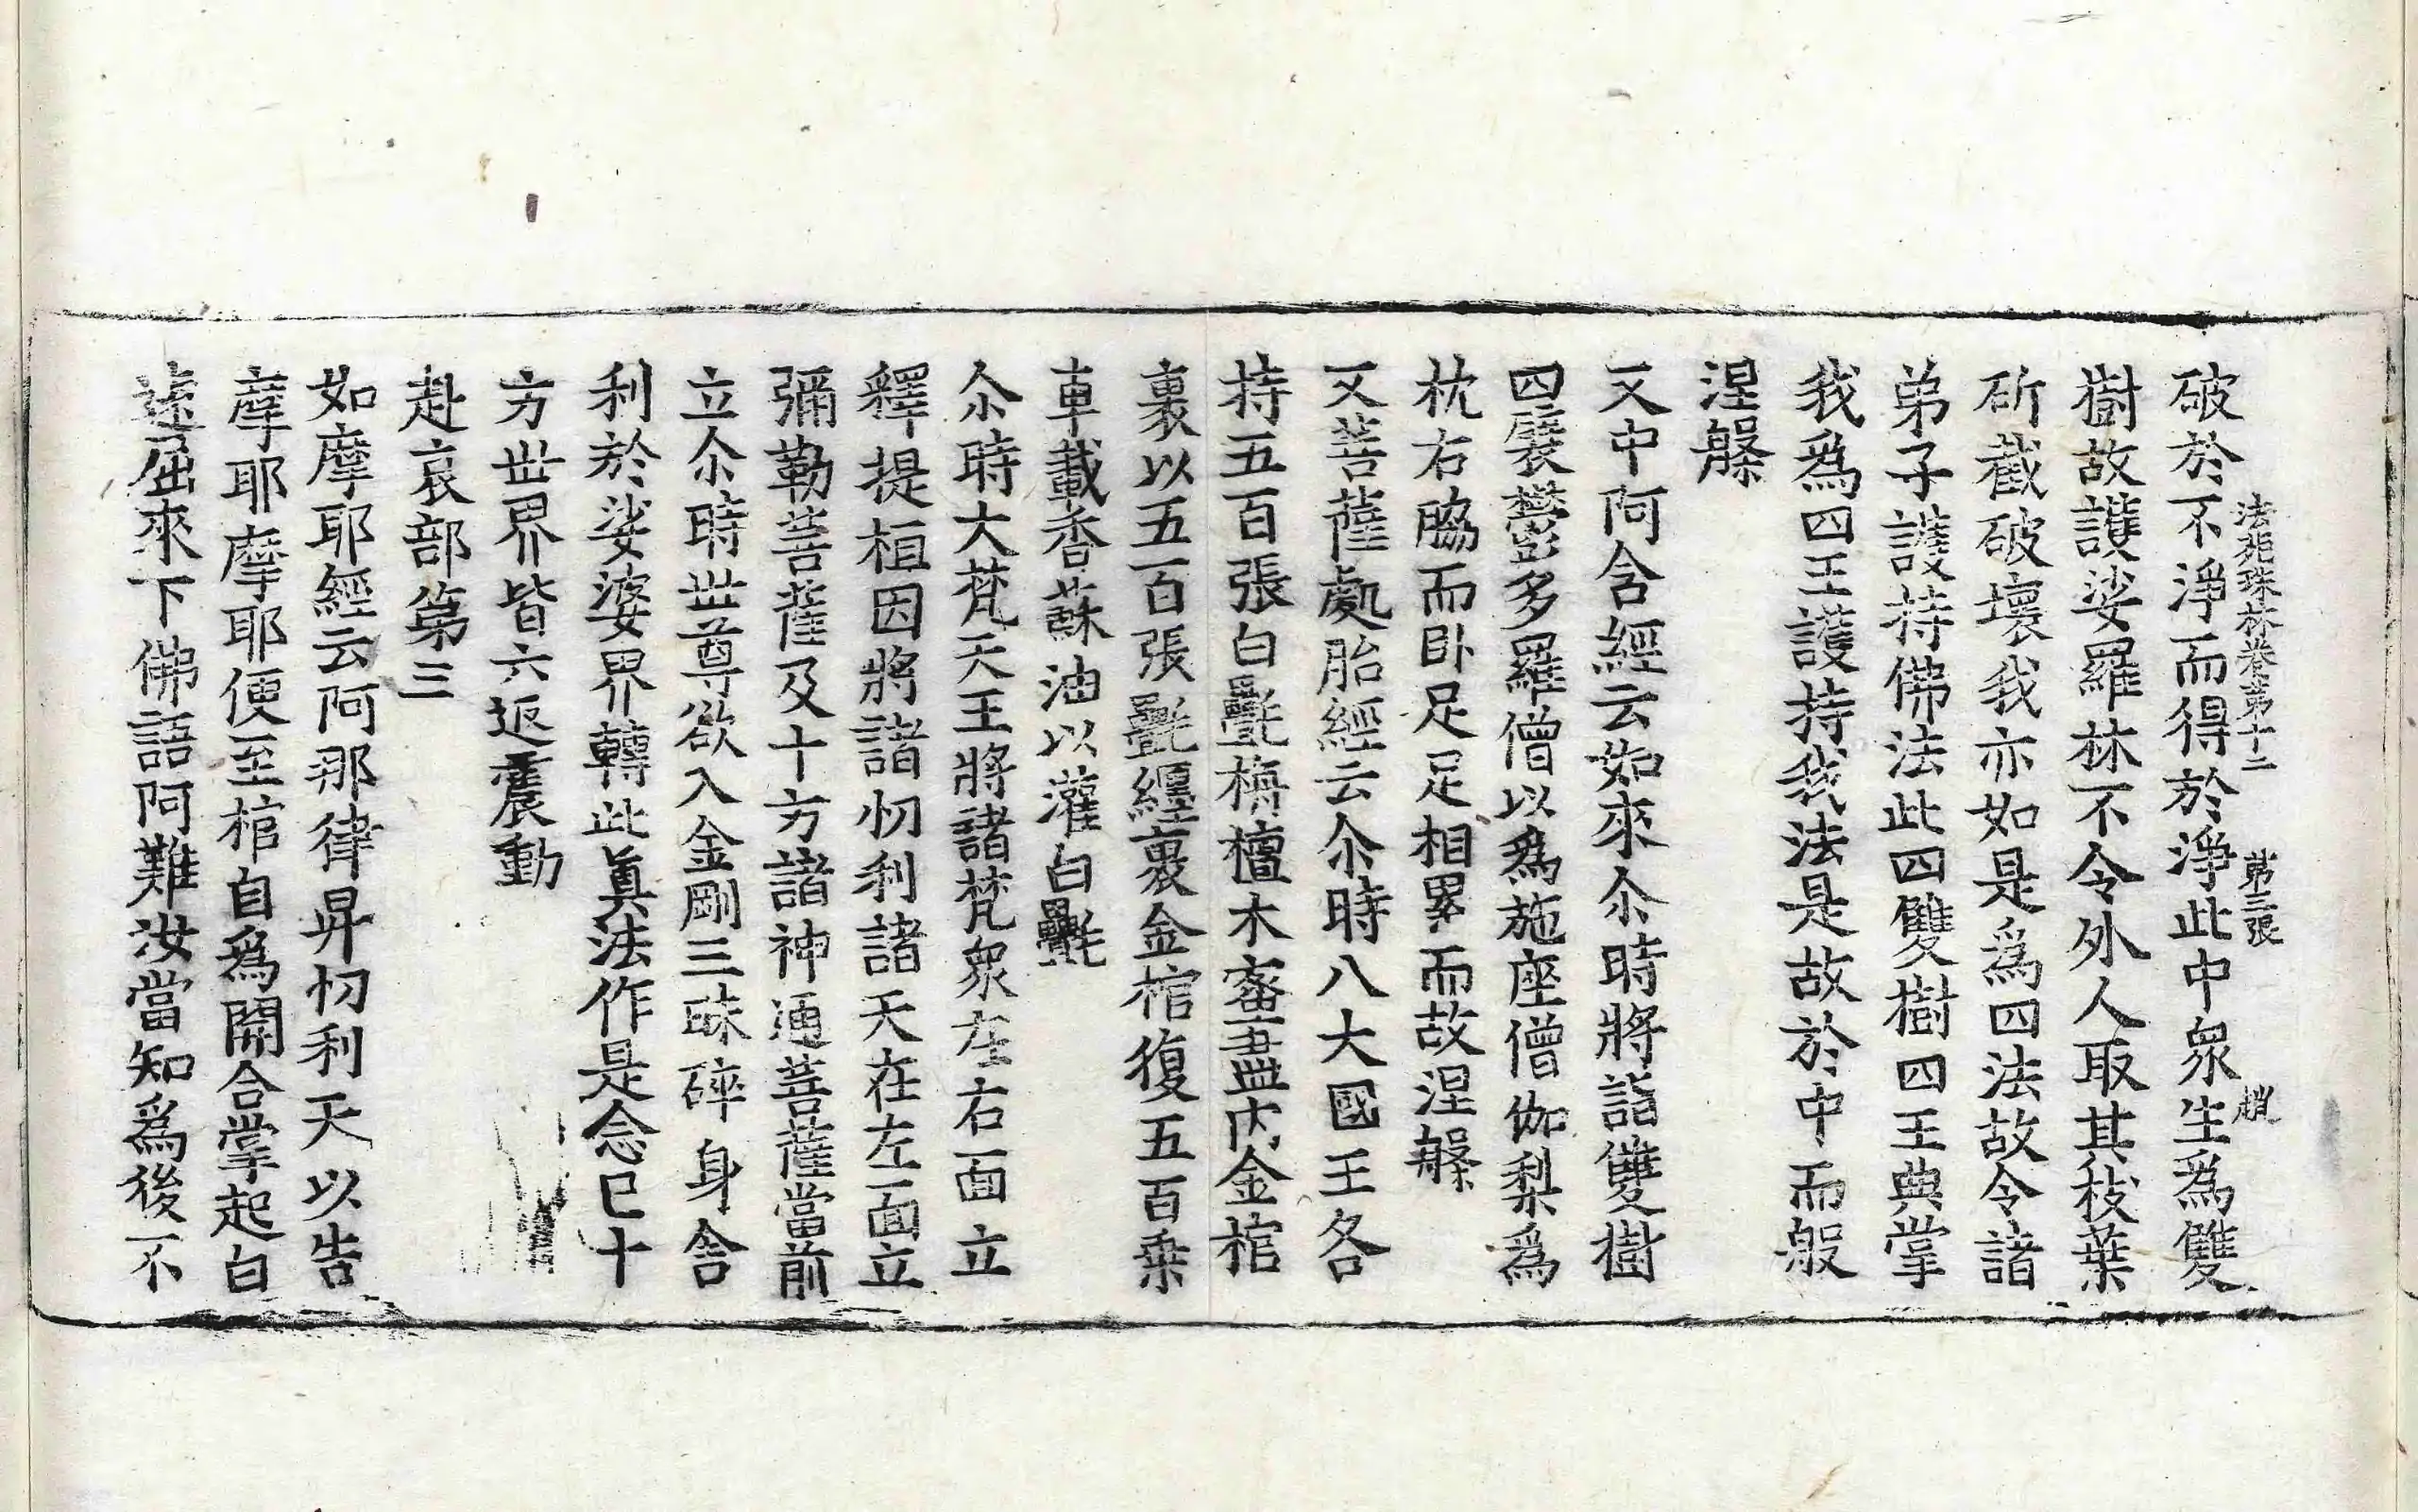 法苑珠林卷第十二 第三張 趙
破於不淨而得於淨此中衆生爲雙
樹故護娑羅林不令外人取其枝葉
斫截破壞我亦如是爲四法故令諸
弟子護持佛法此四雙樹四王典掌
我爲四王護持我法是故於中而般
涅槃
又中阿含經云如來尒時將詣雙樹
四襞欝多羅僧以爲施座僧伽梨爲
枕右脇而卧足足相累而故涅槃
又菩薩處胎經云尒時八大國王各
持五百張白㲲栴檀木蜜盡內金棺
裹以五百張㲲纏裹金棺復五百乘
車載香蘇油以灌白㲲
尒時大梵天王將諸梵衆在右面立
釋提桓因將諸忉利諸天在左面立
彌勒菩薩及十方諸神通菩薩當前
立尒時世尊欲入金剛三昧碎身舍
利於娑婆界轉此眞法作是念已十
方世界皆六返震動
赴哀部第三
如摩耶經云阿那律昇忉利天以告
摩耶摩耶便至棺自爲開合掌起白
遠屈來下佛語阿難汝當知爲後不